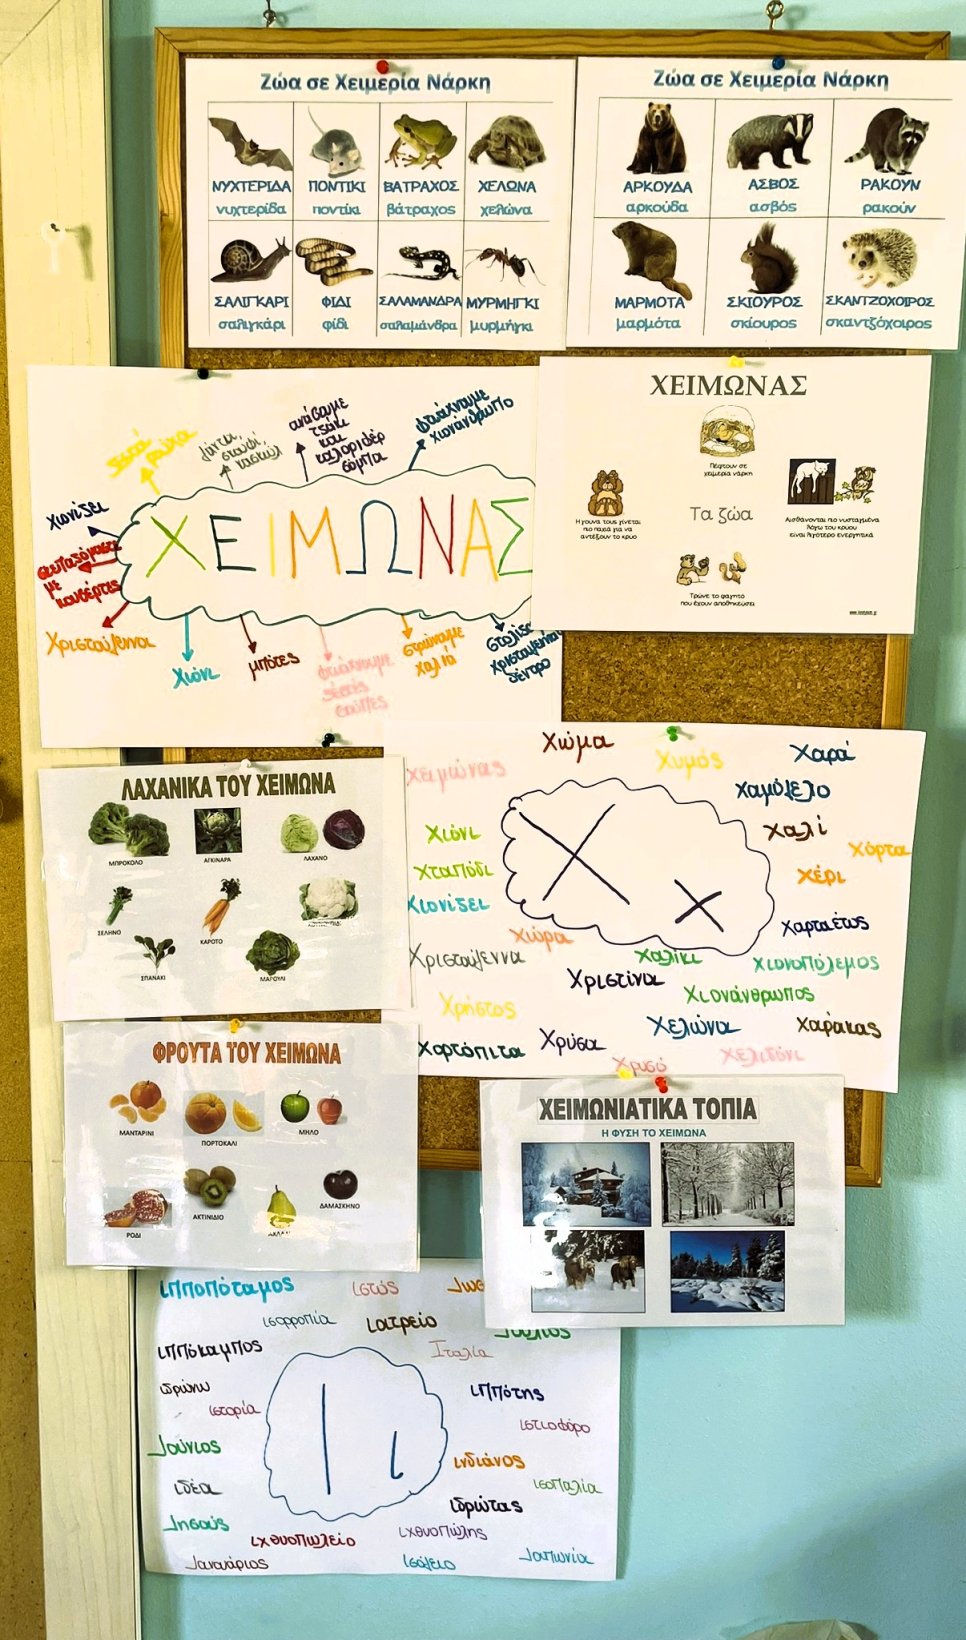 Ζώα σε Χειμερία Νάρκη
ΝΥΧΤΕΡΙΔΑ ΠΟΝΤΙΚΙ ΒΑΤΡΑΧΟΣ ΧΕΛΩΝΑ
νυχτερίδα ποντίκι βάτραχος χελώνα
ΣΑΛΙΓΚΑΡΙ ΦΙΔΙ ΣΑΛΑΜΑΝΔΡΑ ΜΥΡΜΗΓΚΙ
σαλιγκάρι φίδι σαλαμάνδρα μυρμήγκι
Ζώα σε Χειμερία Νάρκη
ΑΡΚΟΥΔΑ ΑΣΒΟΣ ΡΑΚΟΥΝ
αρκούδα ασβός ρακούν
ΜΑΡΜΟΤΑ ΣΚΙΟΥΡΟΣ ΣΚΑΝΤΖΟΧΟΙΡΟΣ
μαρμότα σκίουρος σκαντζόχοιρος
ζεστά
ρούχα
γάντια,
σκουφί,
κασκόλ
ανάβουμε
τζάκι
και
καλοριφέρ
σόμπα
φτιάχνουμε
χιονάνθρωπο
χιονίζει
σκεπαζόμαστε
με
κουβέρτες
ΧΕΙΜΩΝΑΣ
Χριστούγεννα
χιόνι
μπότες
φτιάχνουμε
ζεστές
σούπες
στρώνουμε
χαλιά
δέντρο
ΧΕΙΜΩΝΑΣ
Πέφτουν σε
χειμερία νάρκη
Η γούνα τους γίνεται
πιο παχιά για να
αντέξουν το κρύο
Τα ζώα
Αισθάνονται πιο νυσταγμένα
λόγω του κρύου
είναι λιγότερο ενεργητικά
Τρώνε το φαγητό
που έχουν αποθηκεύσει
ΛΑΧΑΝΙΚΑ ΤΟΥ ΧΕΙΜΩΝΑ
ΜΠΡΟΚΟΛΟ ΑΓΚΙΝΑΡΑ ΛΑΧΑΝΟ
ΣΕΛΗΝΟ ΚΑΡΟΤΟ
ΣΠΑΝΑΚΙ ΜΑΡΟΥΛΙ
Χώμα
χειμώνας Χυμός Χαρά
χαμόγελο
Χιόνι Χαλί
Χταπόδι χόρτα
χέρι
χιονίζει
Χαρταέτος
Χώρα
Χριστούγεννα Χαλίκι Χιονοπόλεμος
Χριστίνα
Χιονάνθρωπος
Χρήστος
Χελώνα Χάρακας
Χορτόπιτα Χρύσα
Χρυσό Χελιδόνι
ΦΡΟΥΤΑ ΤΟΥ ΧΕΙΜΩΝΑ
ΜΑΝΤΑΡΙΝΙ ΠΟΡΤΟΚΑΛΙ ΜΗΛΟ
ΡΟΔΙ ΑΚΤΙΝΙΔΙΟ ΔΑΜΑΣΚΗΝΟ
ΧΕΙΜΩΝΙΑΤΙΚΑ ΤΟΠΙΑ
Η ΦΥΣΗ ΤΟ ΧΕΙΜΩΝΑ
ιπποπόταμος ιστός
ισορροπία ιατρείο Ιούλιος
ιππόκαμπος Ιταλία
ιδρώνω ιππότης
ιστορία ιστιοφόρο
Ιούνιος
Ι ι
ινδιάνος
ιδέα ισοπαλία
ιδρώτας
Ιησούς
ιχθυοπωλείο ιχθυοπώλης
Ιανουάριος ισόγειο Ιαπωνία